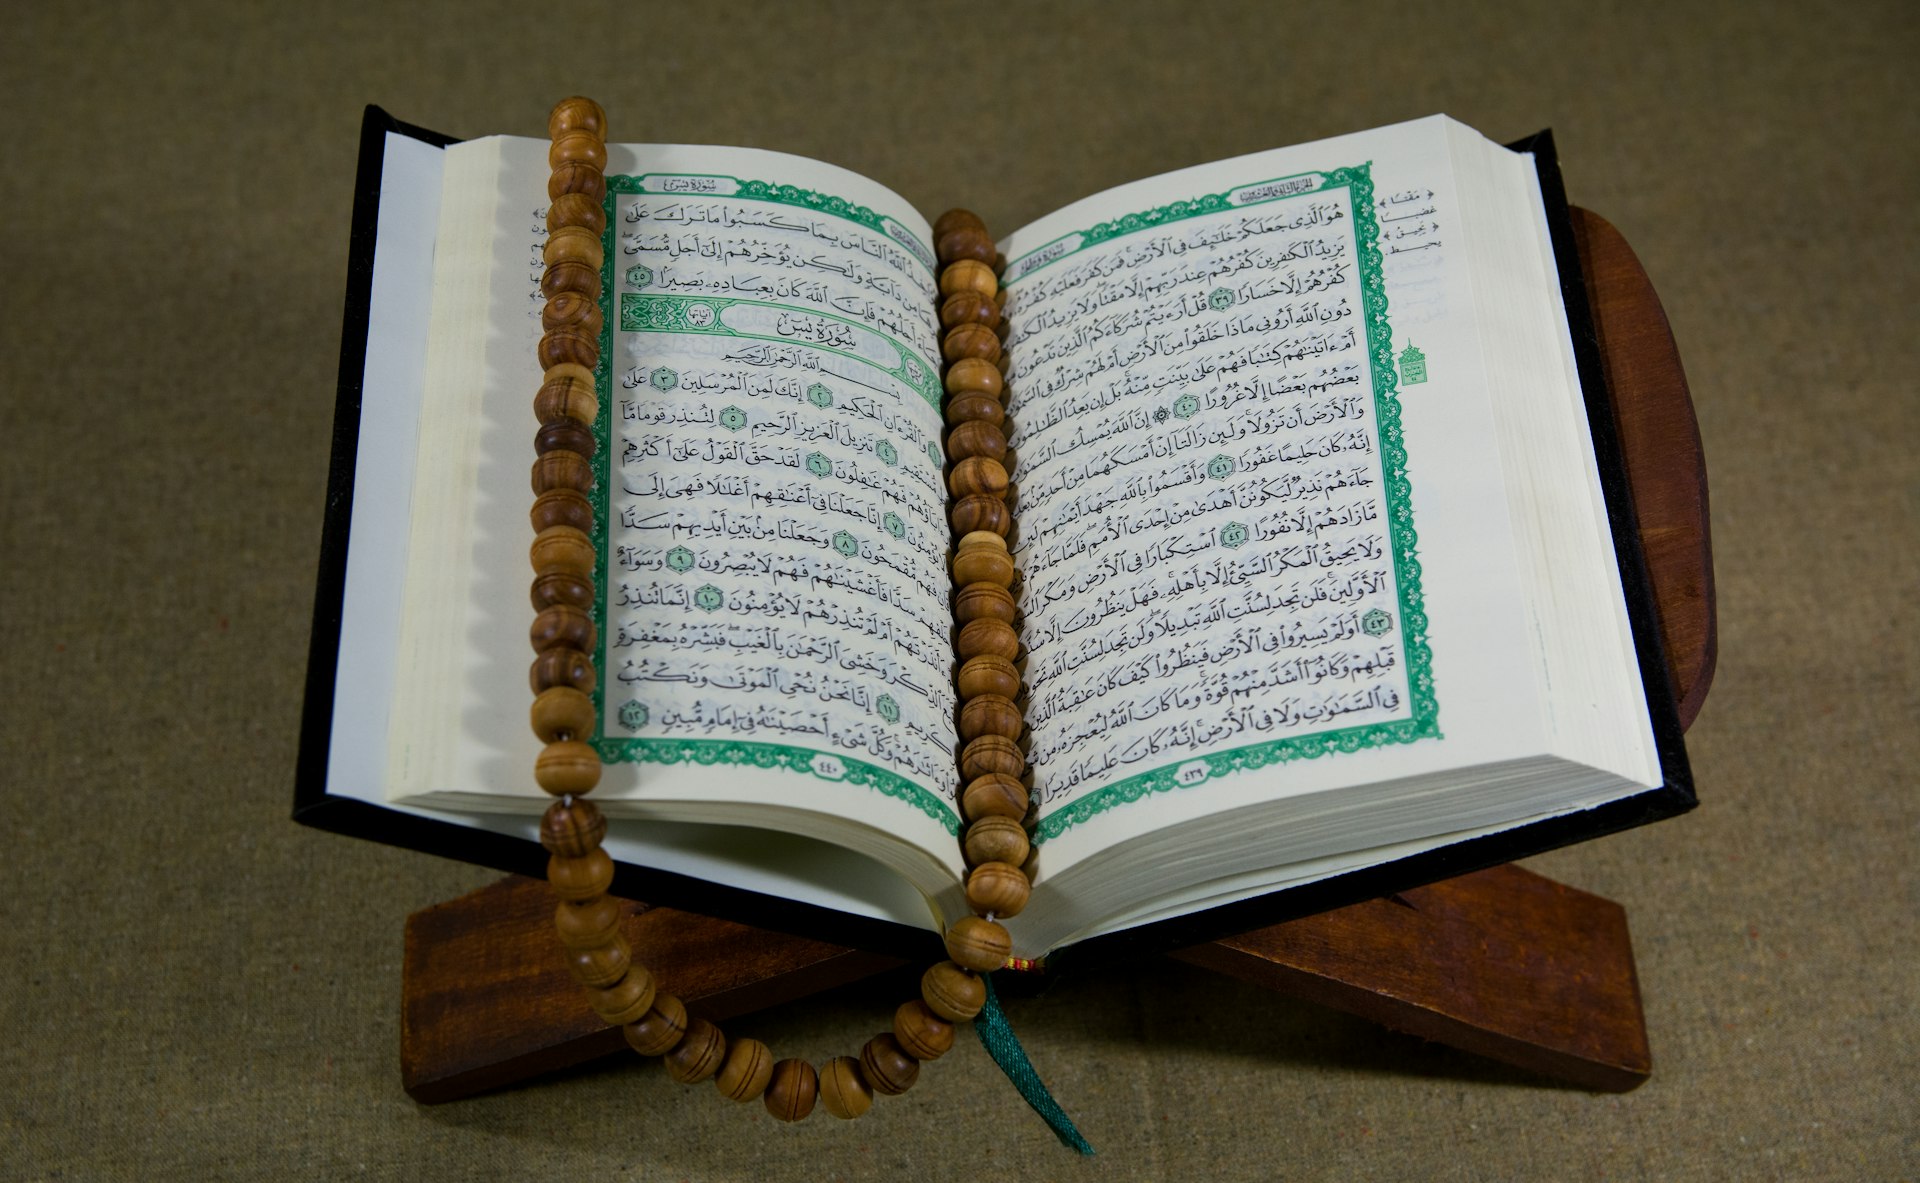 الجزء الثاني والعشرون
سورة فاطر
﴿ مَقْتًا ﴾
غضبا
﴿ يَحِيقُ ﴾
يحيط
هُوَ ٱلَّذِى جَعَلَكُمْ خَلَـٰٓئِفَ فِى ٱلْأَرْضِ فَمَن كَفَرَ فَعَلَيْهِ كُفْرُهُۥ
يَزِيدُ ٱلْكَـٰفِرِينَ كُفْرُهُمْ عِندَ رَبِّهِمْ إِلَّا مَقْتًا وَلَا يَزِيدُ ٱلْكَـٰفِرِينَ
كُفْرُهُمْ إِلَّا خَسَارًا ٣٩ قُلْ أَرَءَيْتُمْ شُرَكَآءَكُمُ ٱلَّذِينَ تَدْعُونَ
دُونِ ٱللَّهِ أَرُونِى مَاذَا خَلَقُوا۟ مِنَ ٱلْأَرْضِ أَمْ لَهُمْ شِرْكٌ فِى
أَمْ ءَاتَيْنَـٰهُمْ كِتَـٰبًا فَهُمْ عَلَىٰ بَيِّنَتٍ مِّنْهُ بَلْ إِن يَعِدُ ٱلظَّـٰلِمُونَ
بَعْضُهُم بَعْضًا إِلَّا غُرُورًا ٤٠ ۞ إِنَّ ٱللَّهَ يُمْسِكُ ٱلسَّمَـٰوَٰتِ
وَٱلْأَرْضَ أَن تَزُولَا وَلَئِن زَالَتَآ إِنْ أَمْسَكَهُمَا مِنْ أَحَدٍ مِّنۢ
إِنَّهُۥ كَانَ حَلِيمًا غَفُورًا ٤١ وَأَقْسَمُوا۟ بِٱللَّهِ جَهْدَ أَيْمَـٰنِهِمْ لَئِن
جَآءَهُمْ نَذِيرٌ لَّيَكُونُنَّ أَهْدَىٰ مِنْ إِحْدَى ٱلْأُمَمِ فَلَمَّا جَآءَهُمْ
مَّا زَادَهُمْ إِلَّا نُفُورًا ٤٢ ٱسْتِكْبَارًا فِى ٱلْأَرْضِ وَمَكْرَ
وَلَا يَحِيقُ ٱلْمَكْرُ ٱلسَّيِّئُ إِلَّا بِأَهْلِهِۦ فَهَلْ يَنظُرُونَ إِلَّا
ٱلْأَوَّلِينَ فَلَن تَجِدَ لِسُنَّتِ ٱللَّهِ تَبْدِيلًا وَلَن تَجِدَ لِسُنَّتِ ٱللَّهِ
٤٣ أَوَلَمْ يَسِيرُوا۟ فِى ٱلْأَرْضِ فَيَنظُرُوا۟ كَيْفَ كَانَ عَـٰقِبَةُ ٱلَّذِينَ
قَبْلِهِمْ وَكَانُوٓا۟ أَشَدَّ مِنْهُمْ قُوَّةً وَمَا كَانَ ٱللَّهُ لِيُعْجِزَهُۥ مِن
فِى ٱلسَّمَـٰوَٰتِ وَلَا فِى ٱلْأَرْضِ إِنَّهُۥ كَانَ عَلِيمًا قَدِيرًا
٤٣٩
سورة يس
ٱللَّهُ ٱلنَّاسَ بِمَا كَسَبُوا۟ مَا تَرَكَ عَلَىٰ
مِن دَآبَّةٍ وَلَـٰكِن يُؤَخِّرُهُمْ إِلَىٰٓ أَجَلٍ مُّسَمًّى
أَجَلُهُمْ فَإِنَّ ٱللَّهَ كَانَ بِعِبَادِهِۦ بَصِيرًۢا ٤٥
سُورَةُ يسٓ
آياتها ٨٣
بِسْمِ ٱللَّهِ ٱلرَّحْمَـٰنِ ٱلرَّحِيمِ
وَٱلْقُرْءَانِ ٱلْحَكِيمِ ٢ إِنَّكَ لَمِنَ ٱلْمُرْسَلِينَ ٣ عَلَىٰ
مُّسْتَقِيمٍ ٤ تَنزِيلَ ٱلْعَزِيزِ ٱلرَّحِيمِ ٥ لِتُنذِرَ قَوْمًا مَّآ
ءَابَآؤُهُمْ فَهُمْ غَـٰفِلُونَ ٦ لَقَدْ حَقَّ ٱلْقَوْلُ عَلَىٰٓ أَكْثَرِهِمْ
يُؤْمِنُونَ ٧ إِنَّا جَعَلْنَا فِىٓ أَعْنَـٰقِهِمْ أَغْلَـٰلًا فَهِىَ إِلَى
فَهُم مُّقْمَحُونَ ٨ وَجَعَلْنَا مِنۢ بَيْنِ أَيْدِيهِمْ سَدًّا
خَلْفِهِمْ سَدًّا فَأَغْشَيْنَـٰهُمْ فَهُمْ لَا يُبْصِرُونَ ٩ وَسَوَآءٌ
ءَأَنذَرْتَهُمْ أَمْ لَمْ تُنذِرْهُمْ لَا يُؤْمِنُونَ ١٠ إِنَّمَا تُنذِرُ
ٱلذِّكْرَ وَخَشِىَ ٱلرَّحْمَـٰنَ بِٱلْغَيْبِ فَبَشِّرْهُ بِمَغْفِرَةٍ
كَرِيمٍ ١١ إِنَّا نَحْنُ نُحْىِ ٱلْمَوْتَىٰ وَنَكْتُبُ
وَءَاثَـٰرَهُمْ وَكُلَّ شَىْءٍ أَحْصَيْنَـٰهُ فِىٓ إِمَامٍ مُّبِينٍ ١٢
٤٤٠